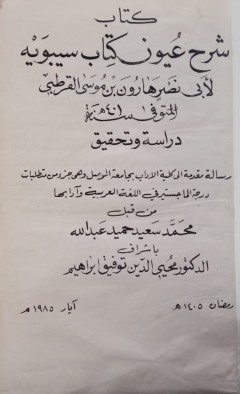 كتاب
شرح عيون كتاب سيبويه
لأبي نصر هارون بن موسى القرطبي
المتوفى سنة ٤٠١ هـ
دراسة وتحقيق
رسالة مقدمة الى كلية الآداب بجامعة الموصل وهي جزء من متطلبات
درجة الماجستير في اللغة العربية وآدابها
من قبل
محمد سعيد حميد عبدالله
باشراف
الدكتور محيي الدين توفيق ابراهيم
رمضان ١٤٠٥ هـ آيار ١٩٨٥ م